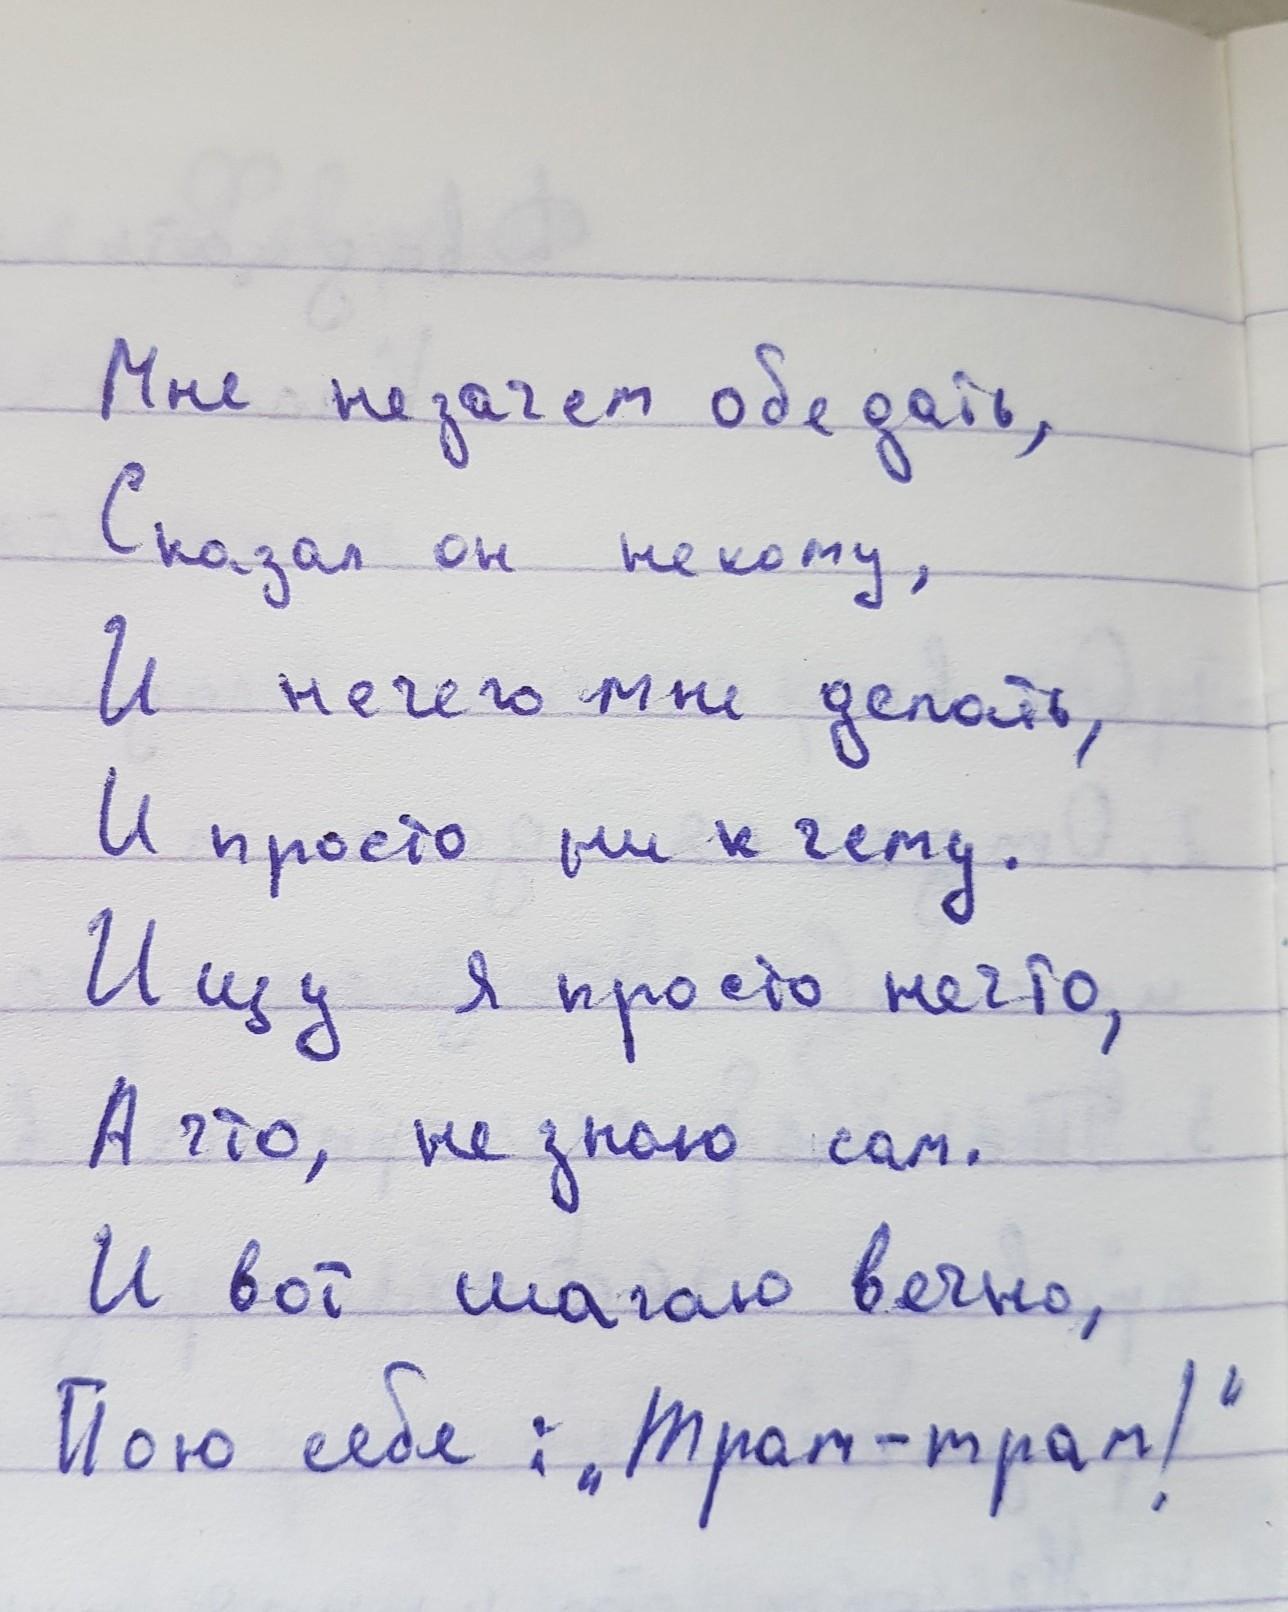 Мне незачем обедать,
Сказал он некому,
И нечего мне делать,
И просто ни к чему.
Ищу я просто нечто,
А что, не знаю сам.
И вот шагаю вечно,
Пою себе: „Трам-трам!“